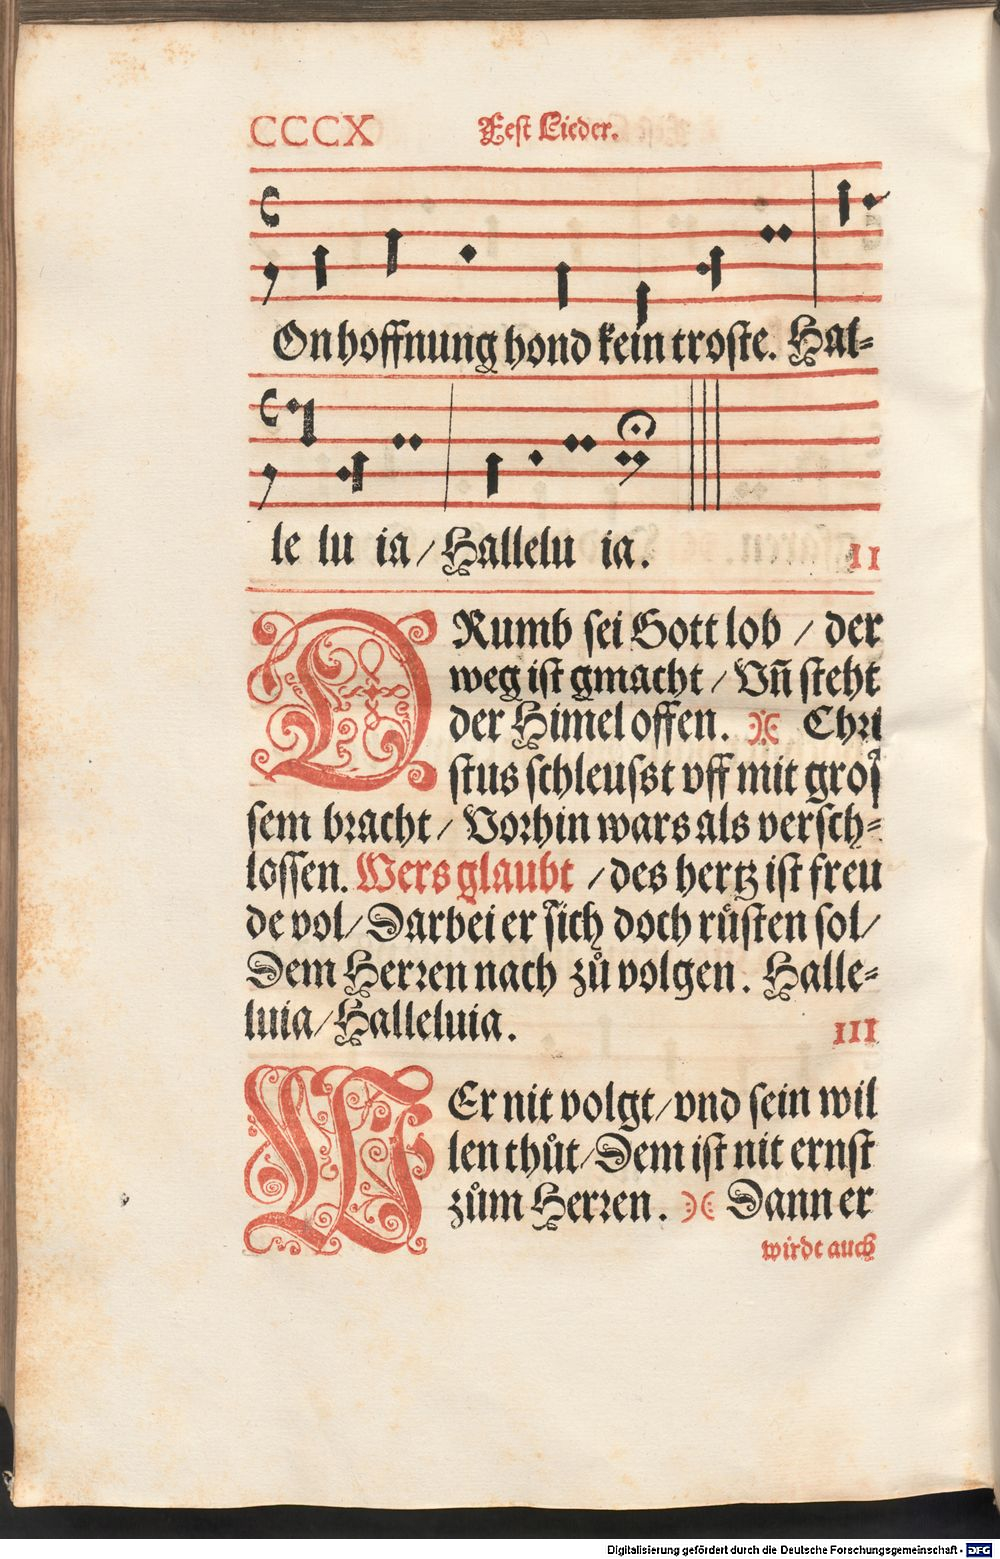 CCCX Fest Lieder.
On hoffnung hond kein troste. Hal-
le lu ia / Hallelu ia.
II
DRumb sei Gott lob / der
weg ist gmacht / Vn̄ steht
der Himel offen. Chri
stus schleusst vff mit gros
sem bracht / Vorhin wars als versch-
lossen. Wers glaubt / des hertz ist freu
de vol / Darbei er sich doch rüsten sol /
Dem Herren nach zů volgen. Halle-
luia / Halleluia.
III
WEr nit volgt / vnd sein wil
len thůt / Dem ist nit ernst
zům Herren. Dann er
wirdt auch
Digitalisierung gefördert durch die Deutsche Forschungsgemeinschaft - DFG